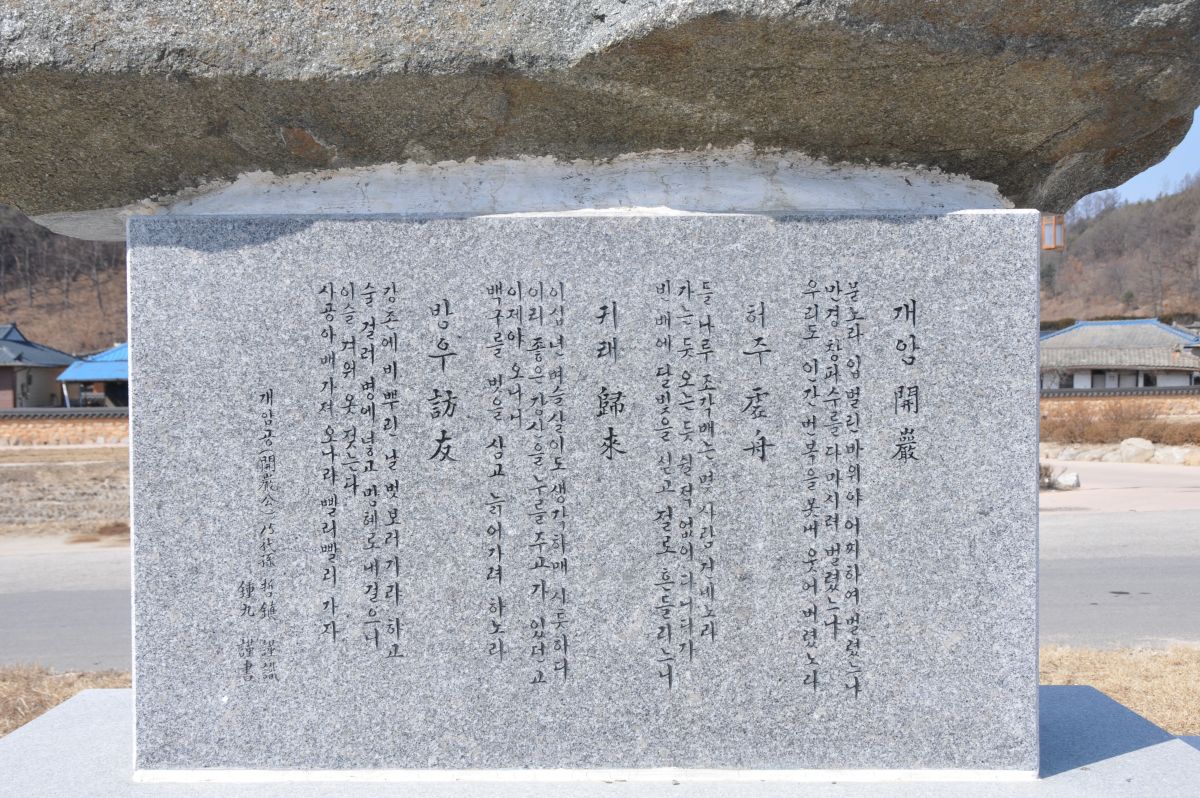 개암 開巖
묻노라 입 벌린 바위야 어찌하여 벌렸느냐
만경창파수를 다 마시려 벌렸느냐
우리도 인간 번복을 못내 웃어 버렸노라
허주 虛舟
들 나루 조각배는 몇 사람 건네노라
가는 듯 오는 듯 쉴 적 없이 다니다가
빈 배에 달빛을 싣고 절로 흔들리느니
귀래 歸來
이십년 벼슬살이도 생각하매 시듯하다
이리 좋은 강산을 누를 주고 가 있던고
이제야 오나니
백구를 벗을 삼고 늙어가려 하노라
방우 訪友
강촌에 비 뿌린 날 벗 보러 가라 하고
술 걸러 병에 넣고 망혜로 내 걸으니
이슬 겨워 옷 젖는다
사공아 배 가져 오나라 빨리빨리 가자
개암공(開巖公) 15代孫 哲鎭 謹識
鍾九 謹書